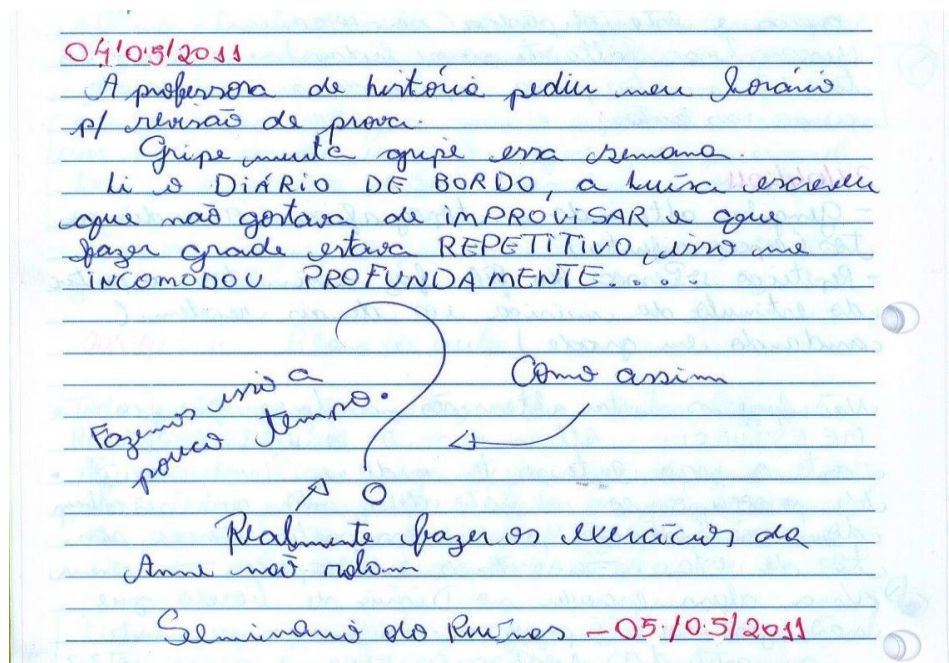 04/05/2011
A professora de história pediu meu horário
p/ revisão de prova.
Gripe muita gripe essa semana.
Li o DIÁRIO DE BORDO, a Luisa escreveu
que não gostava de iMPROViSAR e que
fazer grade estava REPETiTiVO, isso me
iNCOMODOU PROFUNDAMENTE....
Como assim
Fazemos isso a
pouco tempo.
?
Realmente fazer os exercícios da
Anne não rolam
Seminário do - 05/05/2011